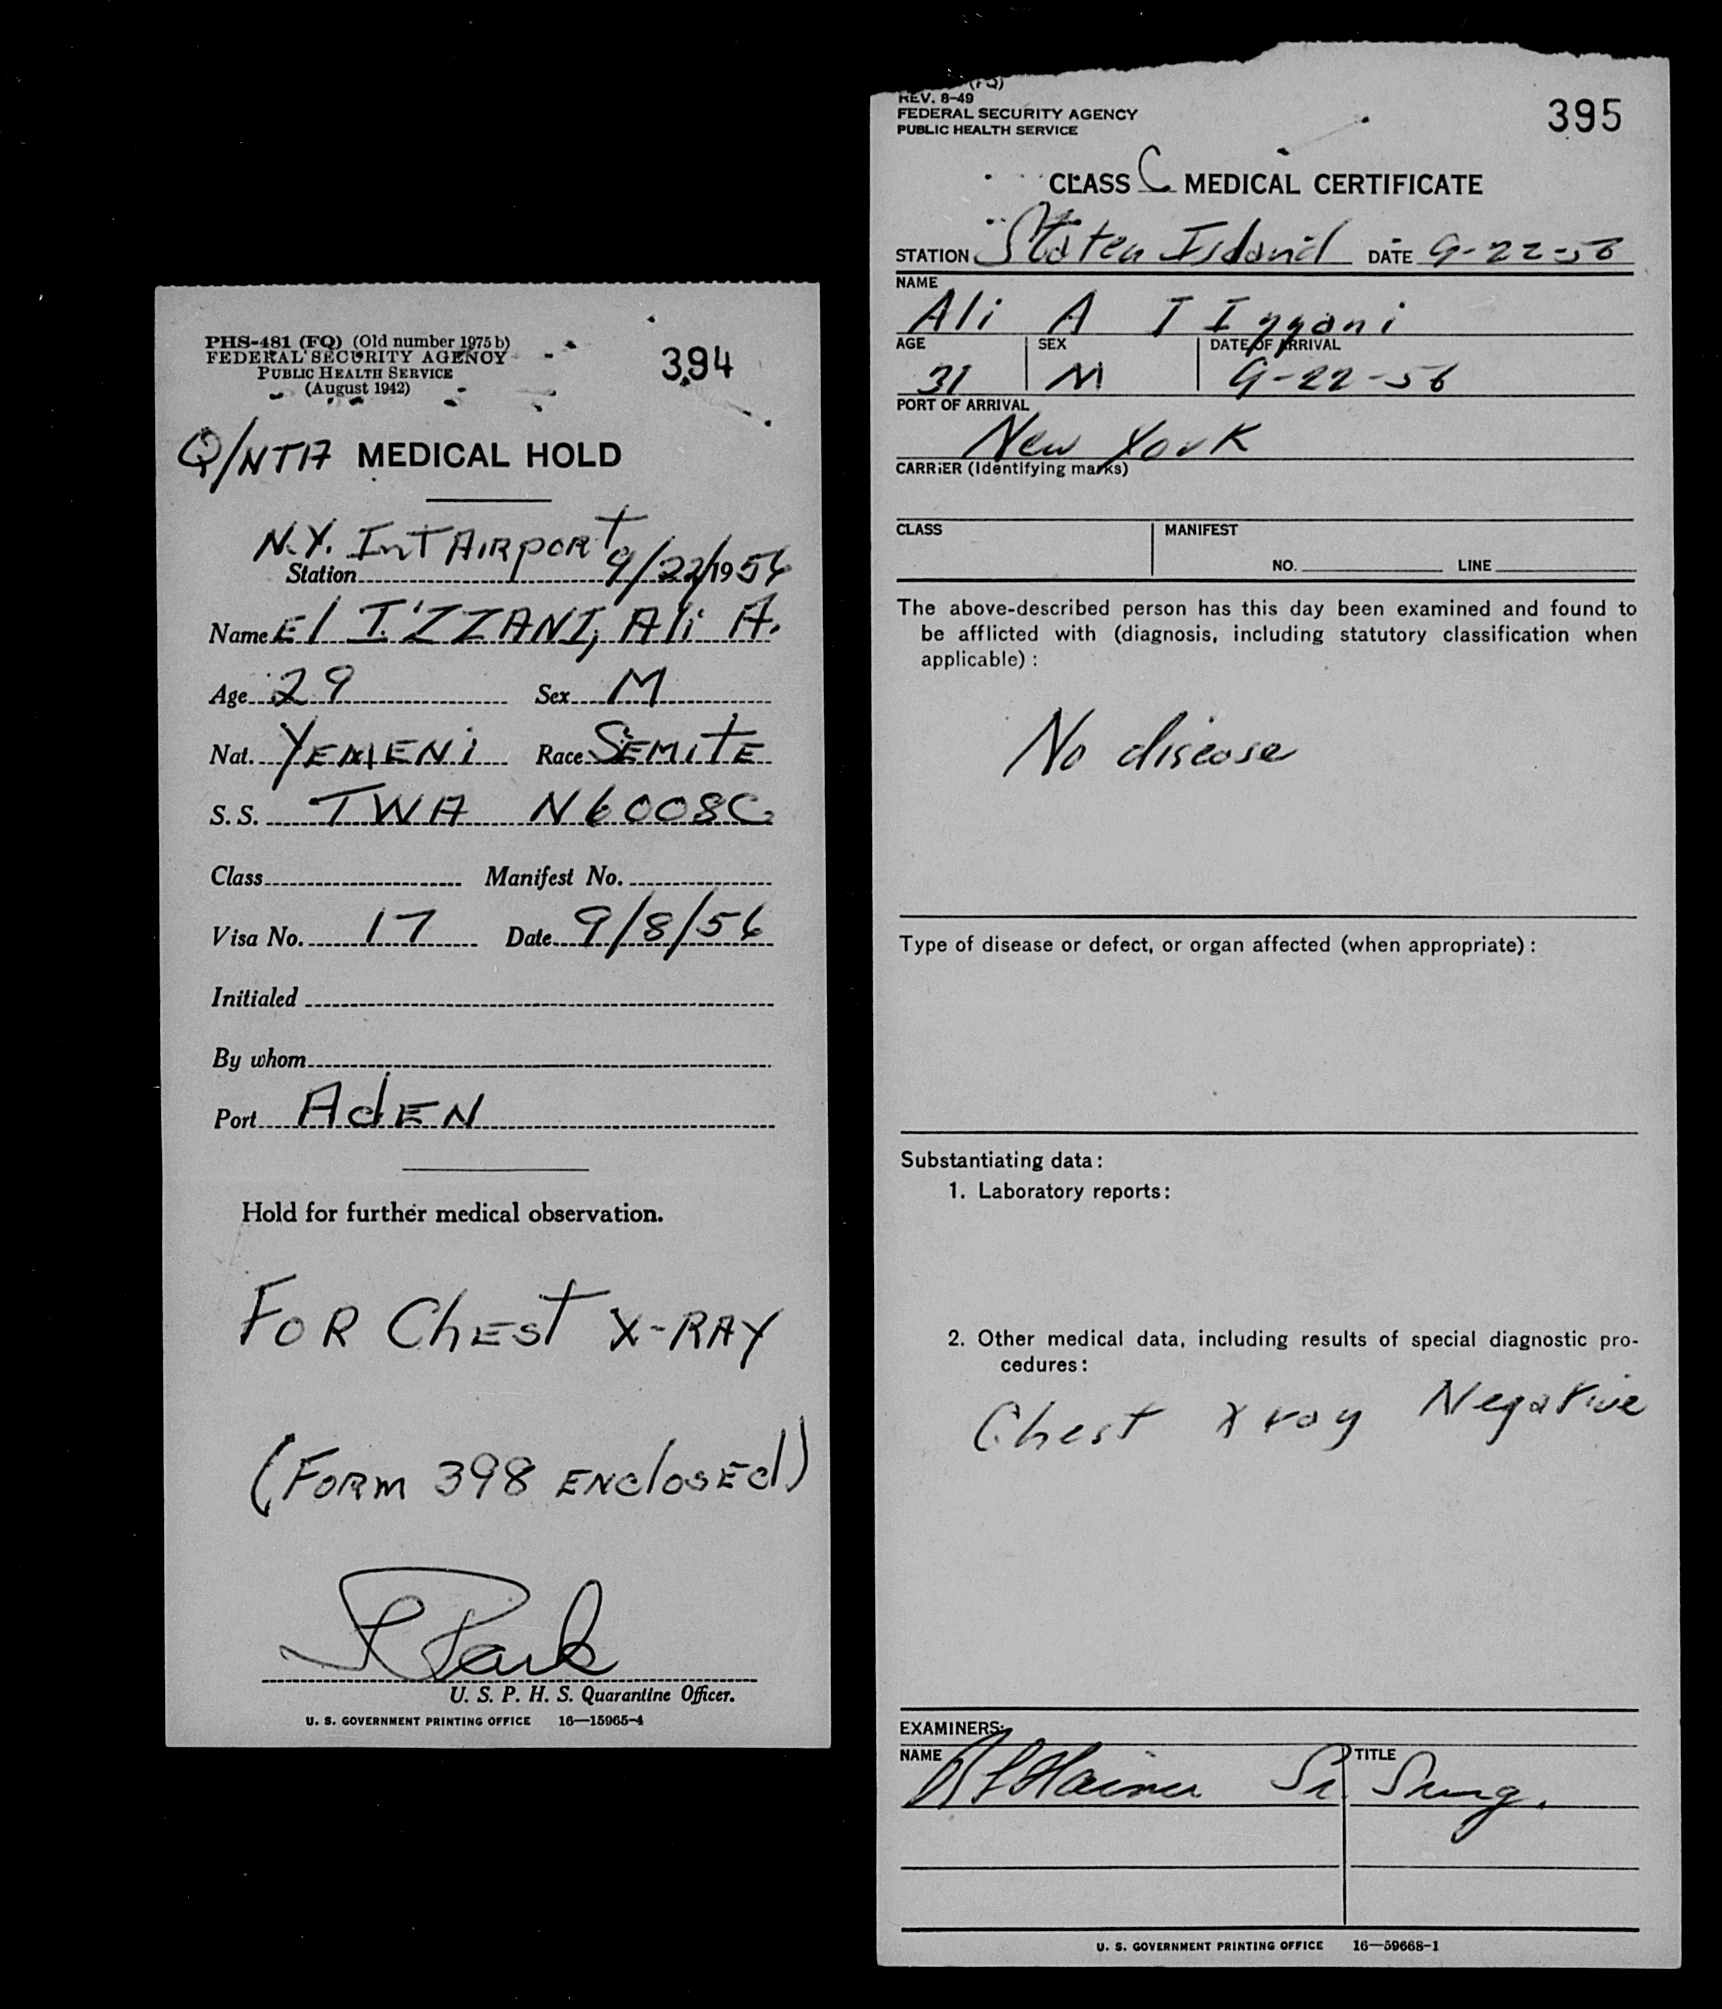 PHS-481 (FQ) (Old number 1975b)
FEDERAL SECURITY AGENCY
PUBLIC HEALTH SERVICE
(August 1942)
394
Q/NTA MEDICAL HOLD
N.Y. InT AIRpoRt
Station 9/22/1956
Name El I'ZZANI, Ali A.
Age 29 Sex M
Nat. YEMENi Race SEMiTE
S. S. TWA N6008C
Class Manifest No.
Visa No. 17 Date 9/8/56
Initialed
By whom
Port AdEN
Hold for further medical observation.
FOR ChEST X-RAY
(FORM 398 ENclosEd)
Park
U. S. P. H. S. Quarantine Officer.
U. S. GOVERNMENT PRINTING OFFICE 16—15965-4
(FQ)
REV. 8-49
FEDERAL SECURITY AGENCY
PUBLIC HEALTH SERVICE
395
CLASS C MEDICAL CERTIFICATE
STATION Staten Island DATE 9-22-56
NAME
Ali A I Izzani
AGE SEX DATE OF ARRIVAL
31 M 9-22-56
PORT OF ARRIVAL
New York
CARRIER (Identifying marks)
CLASS MANIFEST
NO. LINE
The above-described person has this day been examined and found to
be afflicted with (diagnosis, including statutory classification when
applicable) :
No disease
Type of disease or defect, or organ affected (when appropriate) :
Substantiating data :
1. Laboratory reports :
2. Other medical data, including results of special diagnostic pro-
cedures :
Chest X ray Negative
EXAMINERS:
NAME TITLE
Sr Surg.
U. S. GOVERNMENT PRINTING OFFICE 16—59668-1